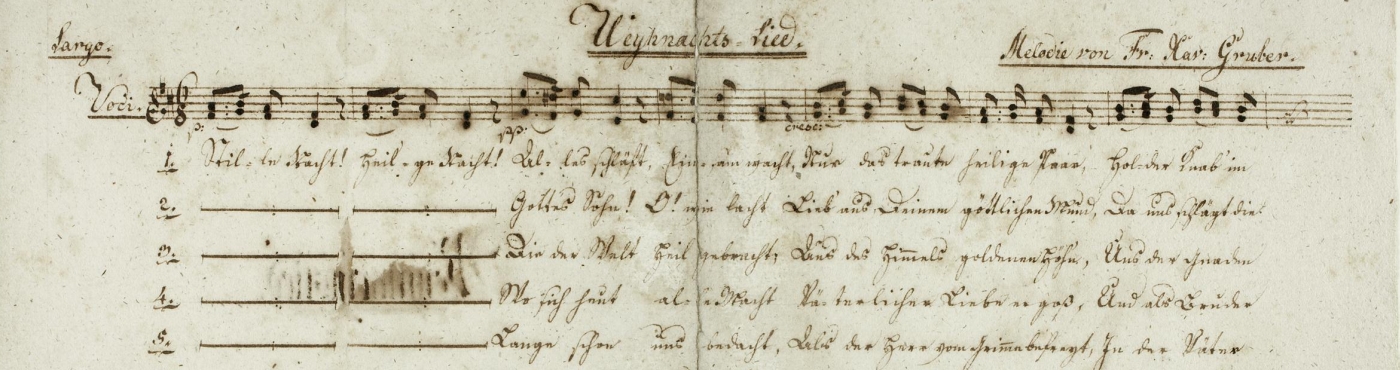 Largo.
Weyhnachts-Lied.
Melodie von Fr: Xav: Gruber.
Voci.
p:
pp:
cresc:
1. Stil-le Nacht! Heil-ge Nacht! Al-les schläft, Ein-sam wacht, Nur das traute heilige Paar, Hol-der Knab' im
2. Gottes Sohn! O! wie lacht Lieb aus Deinem göttlichen Mund, Da uns schlägt die
3. Die der Welt Heil gebracht, Aus des Himmels goldenen Höhn, Uns der Gnaden
4. Wo sich heut al-le Macht Vä-terlicher Liebe er goß, Und als Bruder
5. Lange schon uns bedacht, Als der Herr vom Grimme befreyt, In der Väter